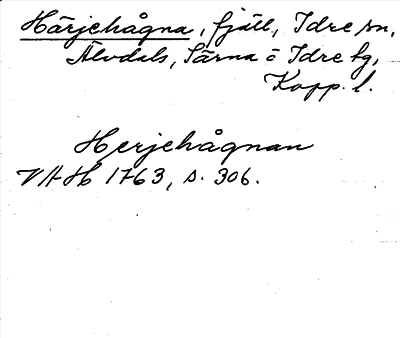 Härjehågna, fjäll, Idre sn,
Älvdals, Särna o Idre tg,
Kopp. l.
Herjehågnan
VAH 1763, s. 306.